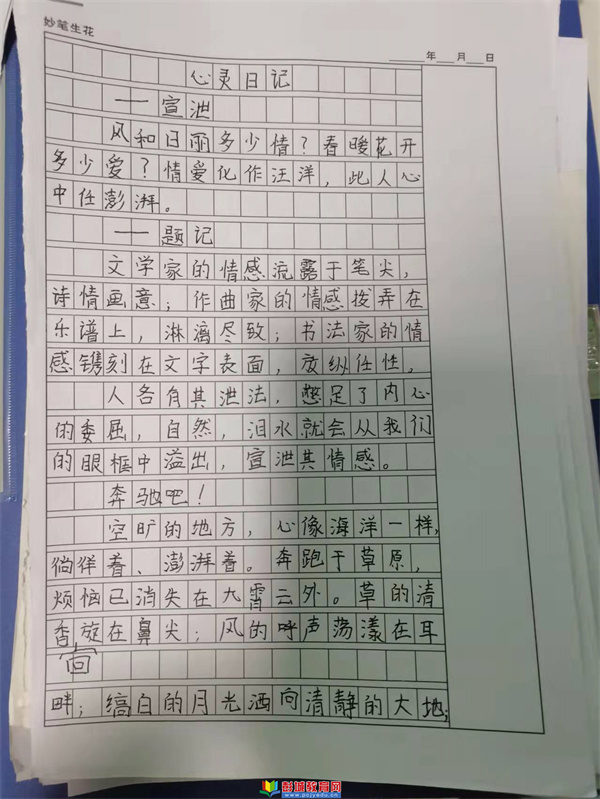 妙笔生花
年 月 日
心灵日记
——宣泄
风和日丽多少情？春暖花开
多少爱？情爱化作汪洋，此人心
中任澎湃。
——题记
文学家的情感流露于笔尖，
诗情画意；作曲家的情感拨弄在
乐谱上，淋漓尽致；书法家的情
感镌刻在文字表面，放纵任性。
人各有其泄法，憋足了内心
的委屈，自然，泪水就会从我们
的眼框中溢出，宣泄其情感。
奔驰吧！
空旷的地方，心像海洋一样，
徜徉着、澎湃着。奔跑于草原，
烦恼已消失在九霄云外。草的清
香旋在鼻尖；风的呼声荡漾在耳
畔；缟白的月光洒向清静的大地；
彭城教育网
www.pcjyedu.cn